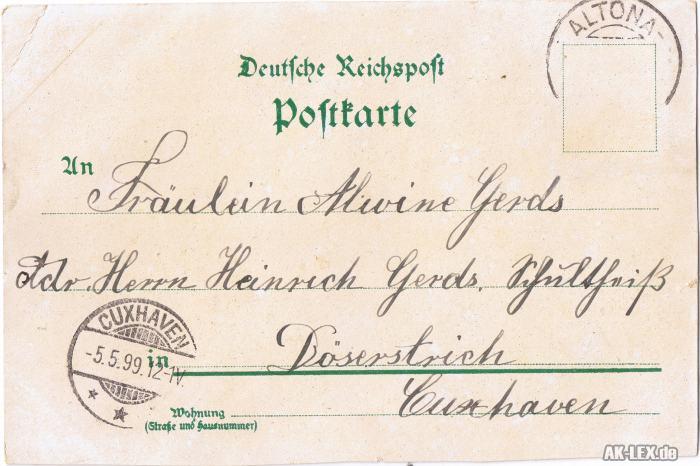 ALTONA-
Deutsche Reichspost
Postkarte
An
Fräulein Alwine Gerds
Adr. Herrn Heinrich Gerds. Schultheiß
CUXHAVEN
-5.5.99.12-1V.
in
Döserstrich
Cuxhaven
Wohnung
(Straße und Hausnummer)
AK-LEX.de